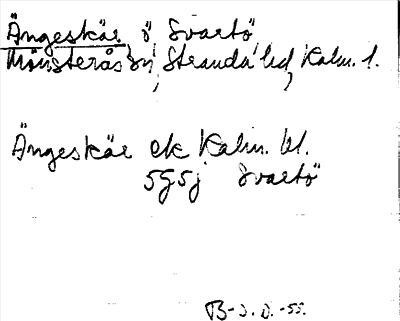 Ängeskär, ö Svartö,
Mönsterås sn, Stranda hd, Kalm. l.
Ängeskär ek Kalm. bl.
5g5j Svartö
B-J.D.-55.